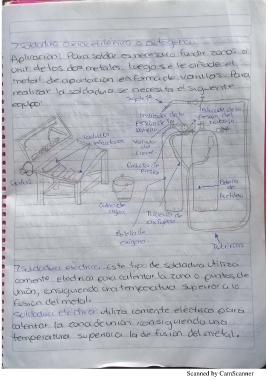 7 Soldadura oxiacetilénica o autógena
Aplicación: Para soldar es necesario fundir zonas a
unir de los dos metales, luego se le añade el
metal de aportación en forma de varillas. Para
realizar la soldadura se necesita el siguiente
equipo:
Soplete
presión de
trabajo
Válvula
Ladrillos
refractarios
Cubo de
agua
Tuberia de
Botella de
oxigeno
Botella
de
Acetileno
Tuberias
7 Soldadura eléctrica: Este tipo de soldadura utiliza
corriente electrica para calentar la zona o puntos de
unión, consiguiendo una temperatura superior a la
fusión del metal.
Soldadura eléctrica utiliza corriente electrica para
calentar la zona de unión consiguiendo una
temperatura superior a la de fusión del metal.
Scanned by CamScanner